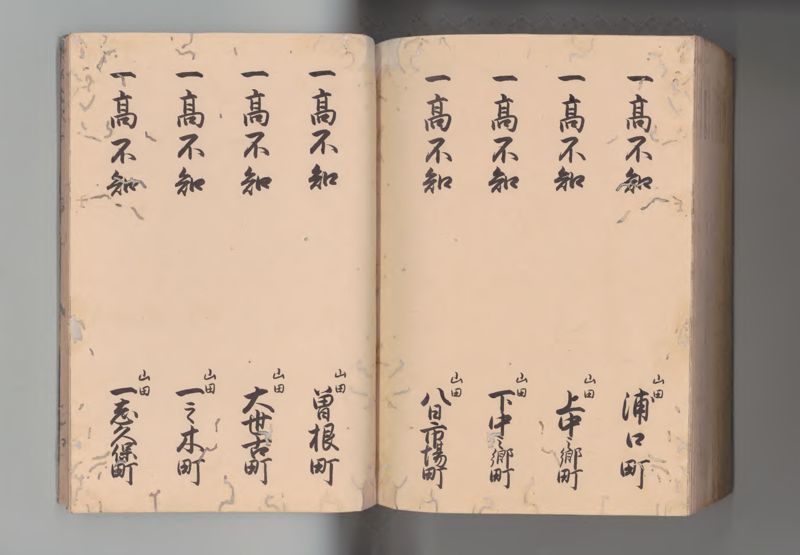 一高不知
山田 浦口町
一高不知
山田 上中之郷町
一高不知
山田 下中之郷町
一高不知
山田 八日市場町
一高不知
山田 曽根町
一高不知
山田 大世古町
一高不知
山田 一之木町
一高不知
山田 一志久保町